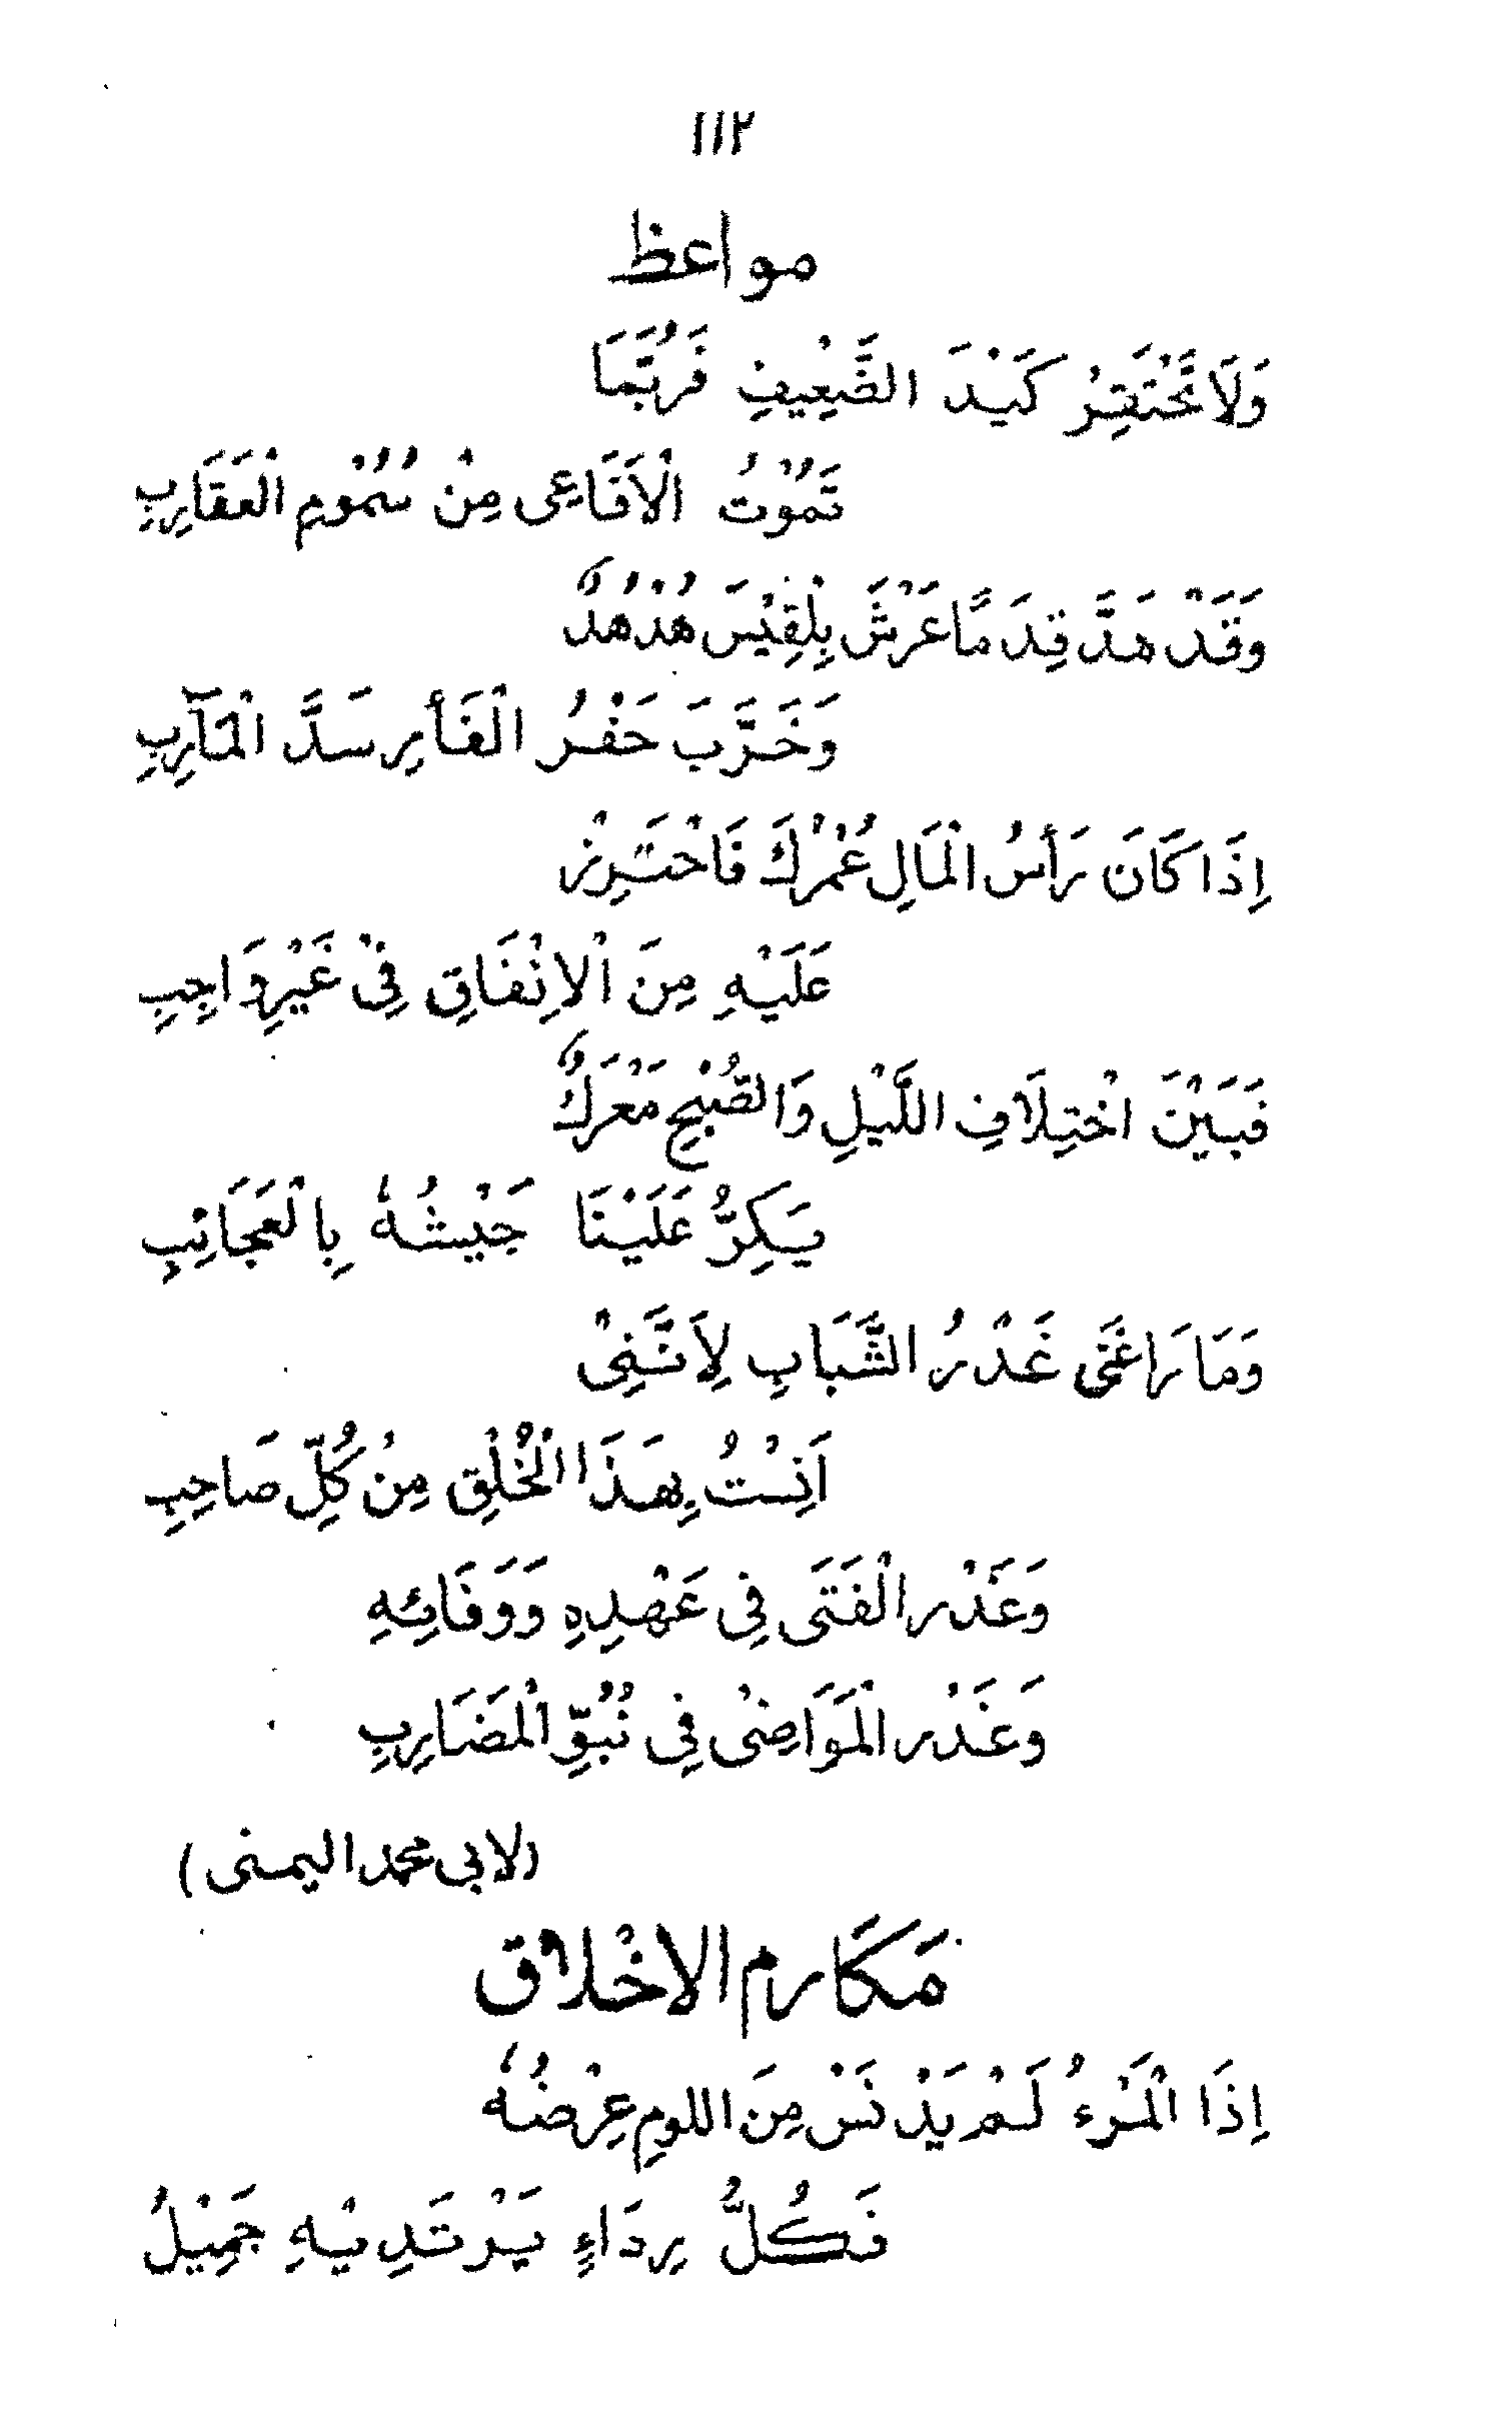 ١١٢
مواعظ
وَلَا تَحْتَقِرْ كَيْدَ الضَّعِيفِ فَرُبَّمَا
تَمُوْتُ الْاَفَاعِى مِنْ سُمُوْمِ الْعَقَارِبِ
وَقَدْ هَدَّ قِدَمًا عَرْشَ بِلْقِيْسَ هُدْهُدٌ
وَخَرَّبَ حَفْرُ الْفَأرِ سَدَّ الْمَآرِبِ
اِذَا كَانَ رَأسُ الْمَالِ عُمْرُكَ فَاحْتَرِزْ
عَلَيْهِ مِنَ الْاِنْفَاقِ فِىْ غَيْرِ وَاجِبِ
فَبَيْنَ اخْتِلَافِ اللَّيْلِ وَالصُّبْحِ مَعْرَكٌ
يَكِرُّ عَلَيْنَا جَيْشُهٗ بِالْعَجَائِبِ
وَمَا رَاعَنَى غَدْرُ الشَّبَابِ لِاَنَّنِىْ
اَنِسْتُ بِهَذَا الْخُلْقِ مِنْ كُلِّ صَاحِبِ
وَغَدْرِ الْفَتَى فِى عَهْدِهِ وَوَفَائِهِ
وَغَدْرِ الْمَوَاضِىْ فِى نُبُوِّ الْمَضَارِبِ
(لابى محمد اليمنى)
مَكَارم الاخْلاق
اِذَا الْمَرْءُ لَمْ يَدْنَسْ مِنَ اللومِ عِرْضُهٗ
فَكُلُّ رِدَاءٍ يَرْتَدِيْهِ جَمِيْلُ